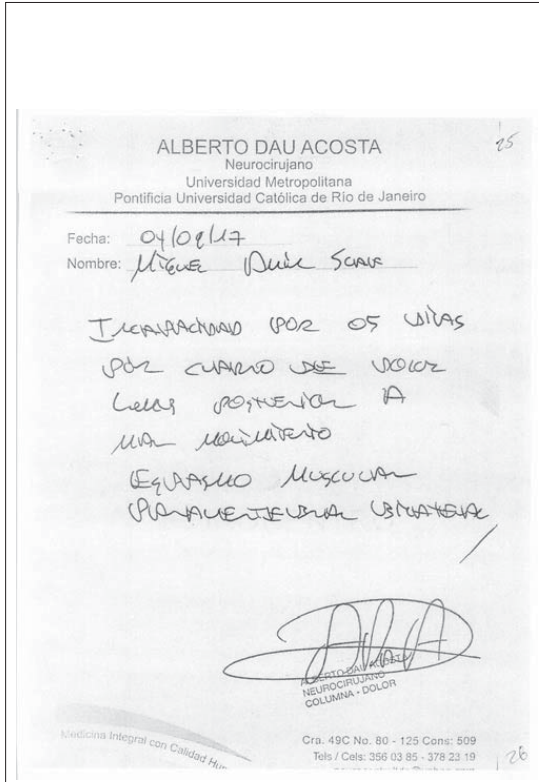 25
ALBERTO DAU ACOSTA
Neurocirujano
Universidad Metropolitana
Pontificia Universidad Católica de Río de Janeiro
Fecha: 04/09/17
Nombre: Miguel
Incapacidad por 05 días
por cuadro de dolor
posterior a
mal movimiento
Espasmo muscular
paravertebral bilateral
ALBERTO DAU ACOSTA
NEUROCIRUJANO
COLUMNA - DOLOR
Medicina Integral con Calidad
Cra. 49C No. 80 - 125 Cons: 509
Tels / Cels: 356 03 85 - 378 23 19
26